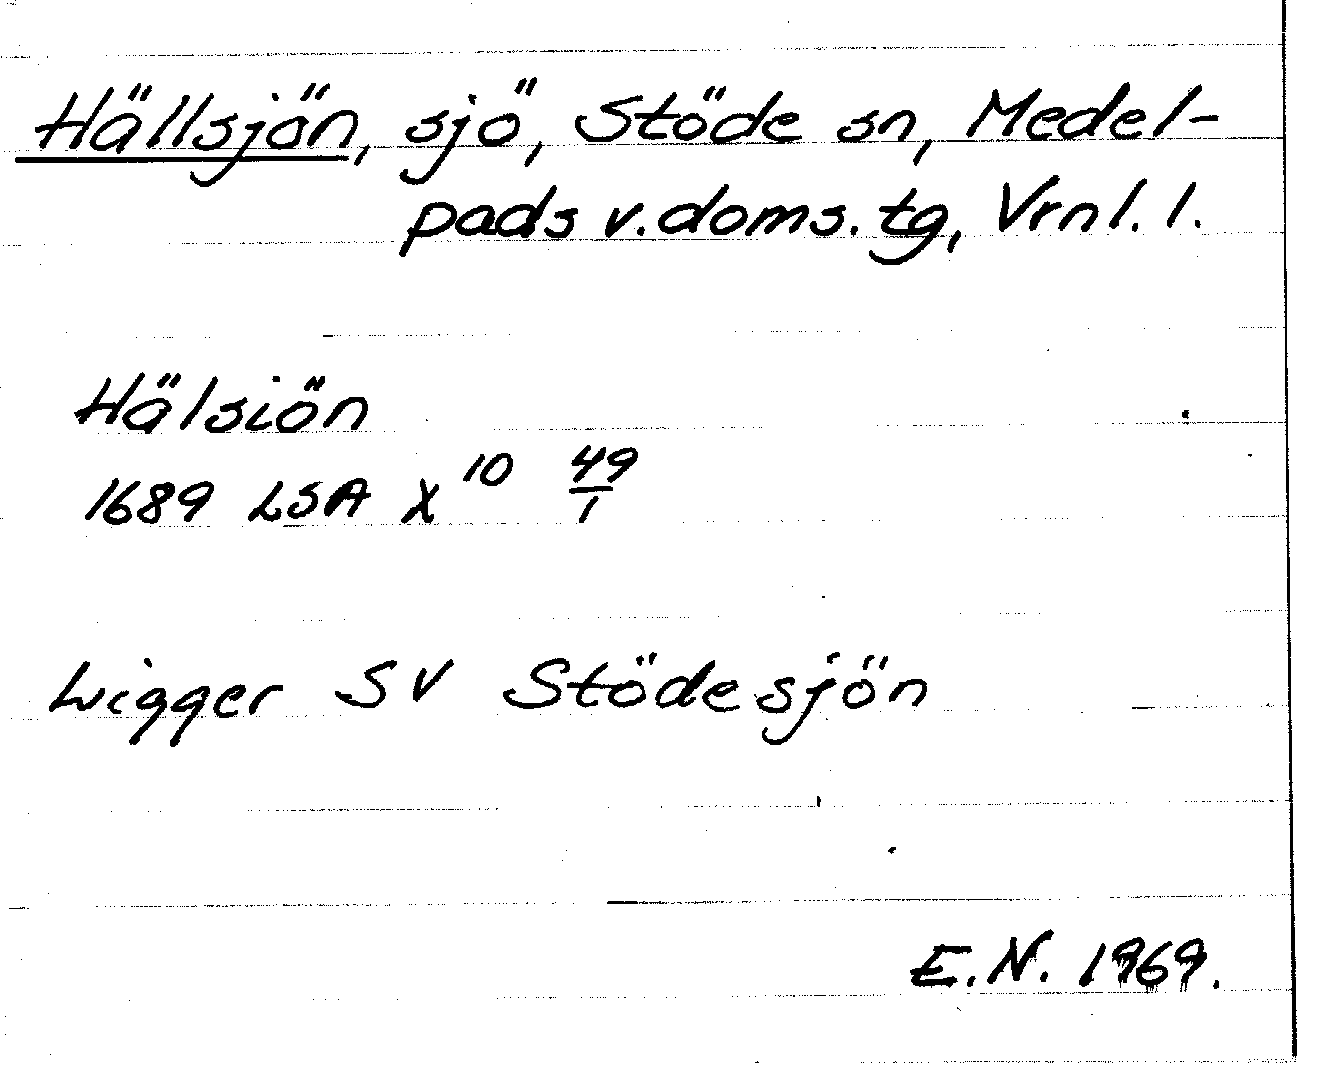 Hällsjön, sjö, Stöde sn, Medel-
pads v. doms. tg, Vrnl. l.
Hälsiön
1689 LSA X 10 49/1
Ligger SV Stödesjön
E.N. 1969.